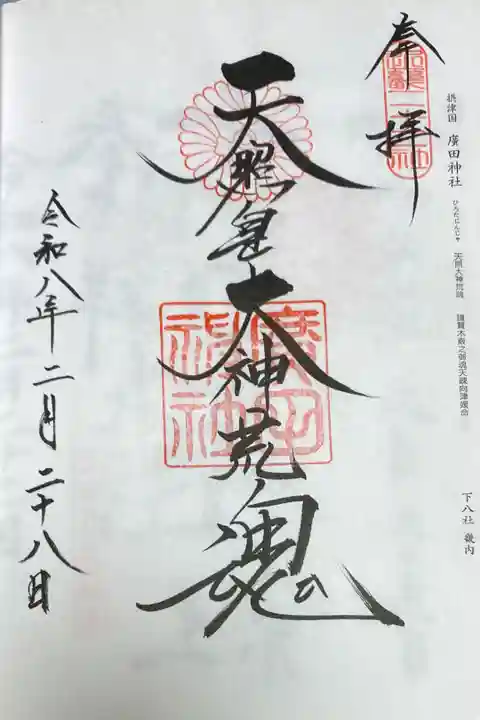 摂津国 廣田神社 ひろたじんじゃ 天照大神荒魂 撞賢木厳之御魂天疎向津媛命
下八社 畿内
奉拝
天照皇大神荒魂
廣田神社
令和八年二月二十八日